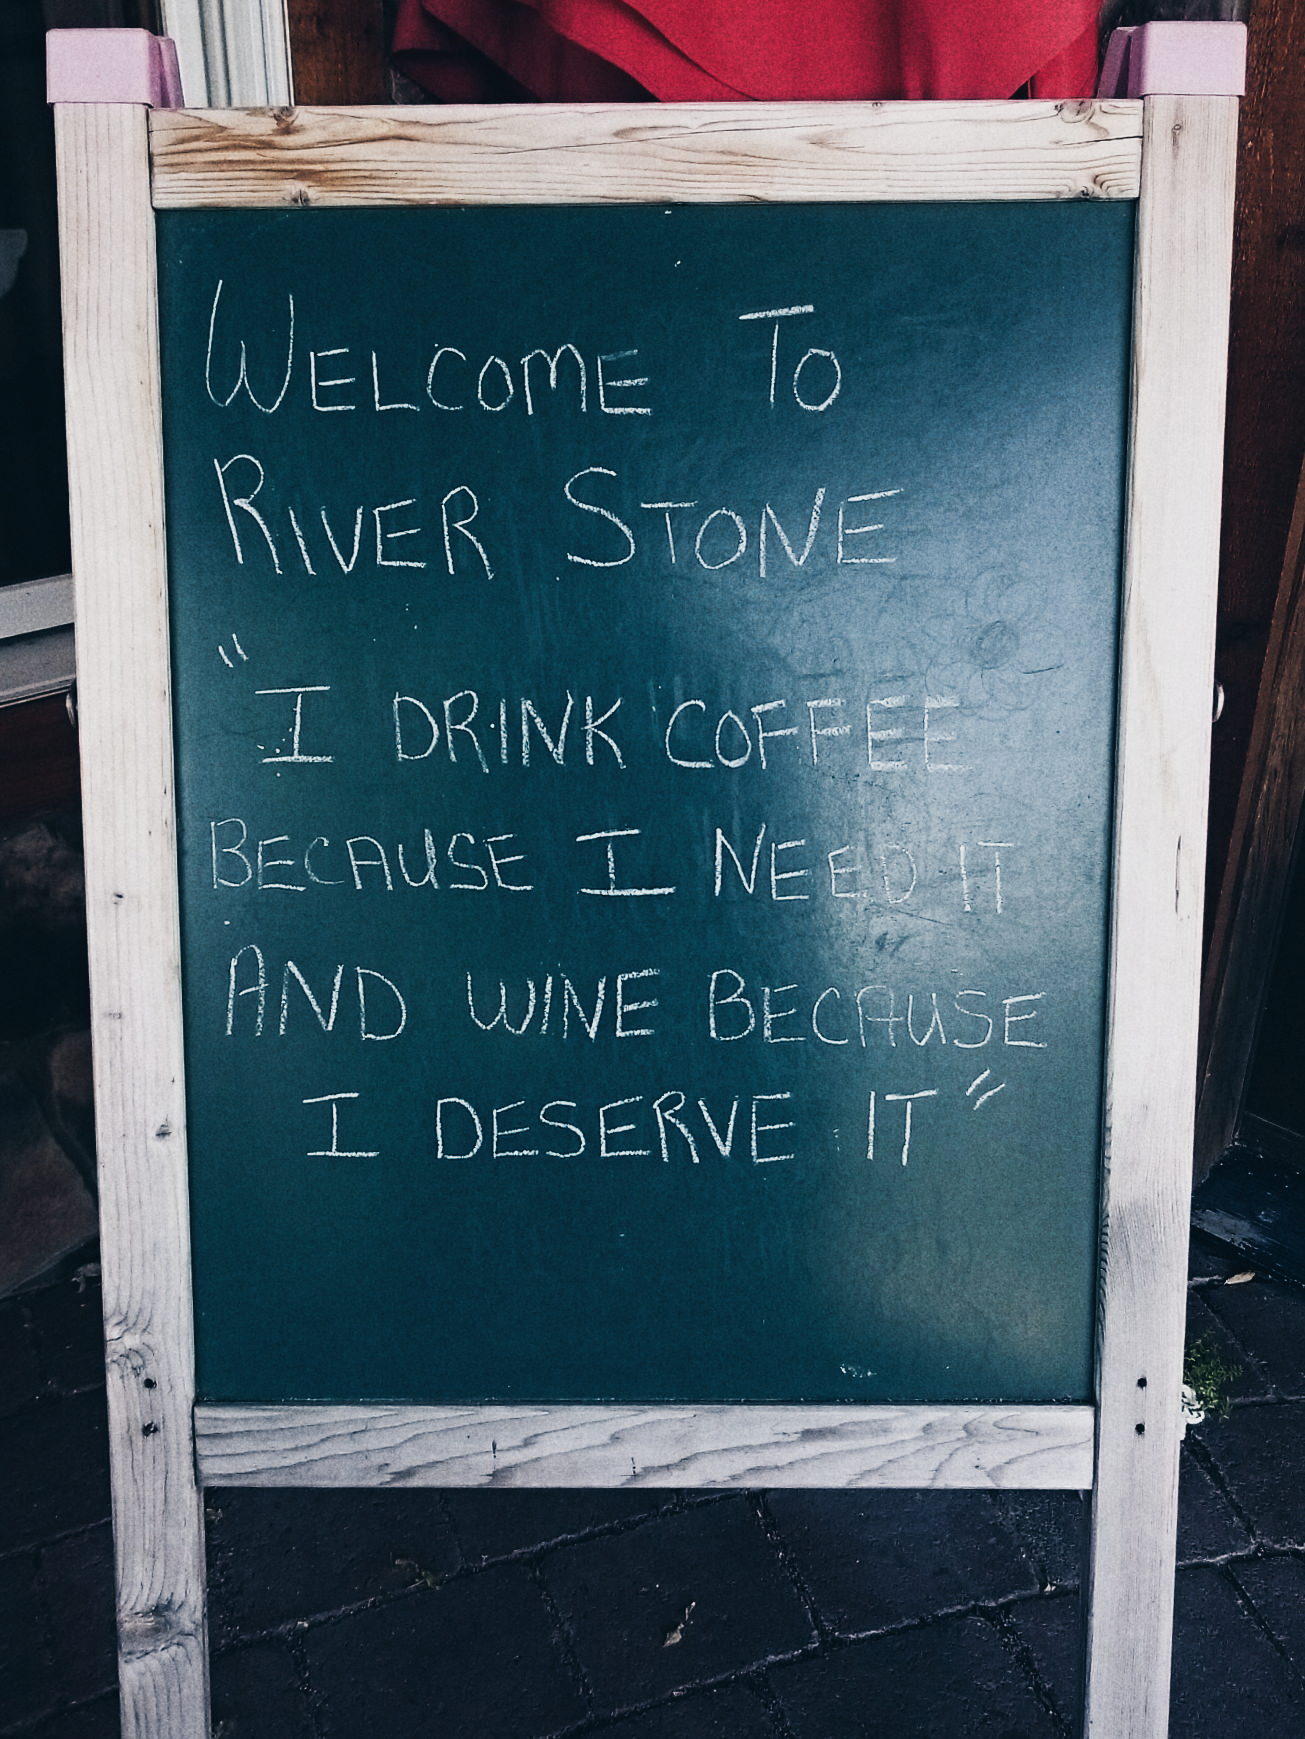 WELCOME TO
RIVER STONE
"
I DRINK COFFEE
BECAUSE I NEED IT
AND WINE BECAUSE
I DESERVE IT"